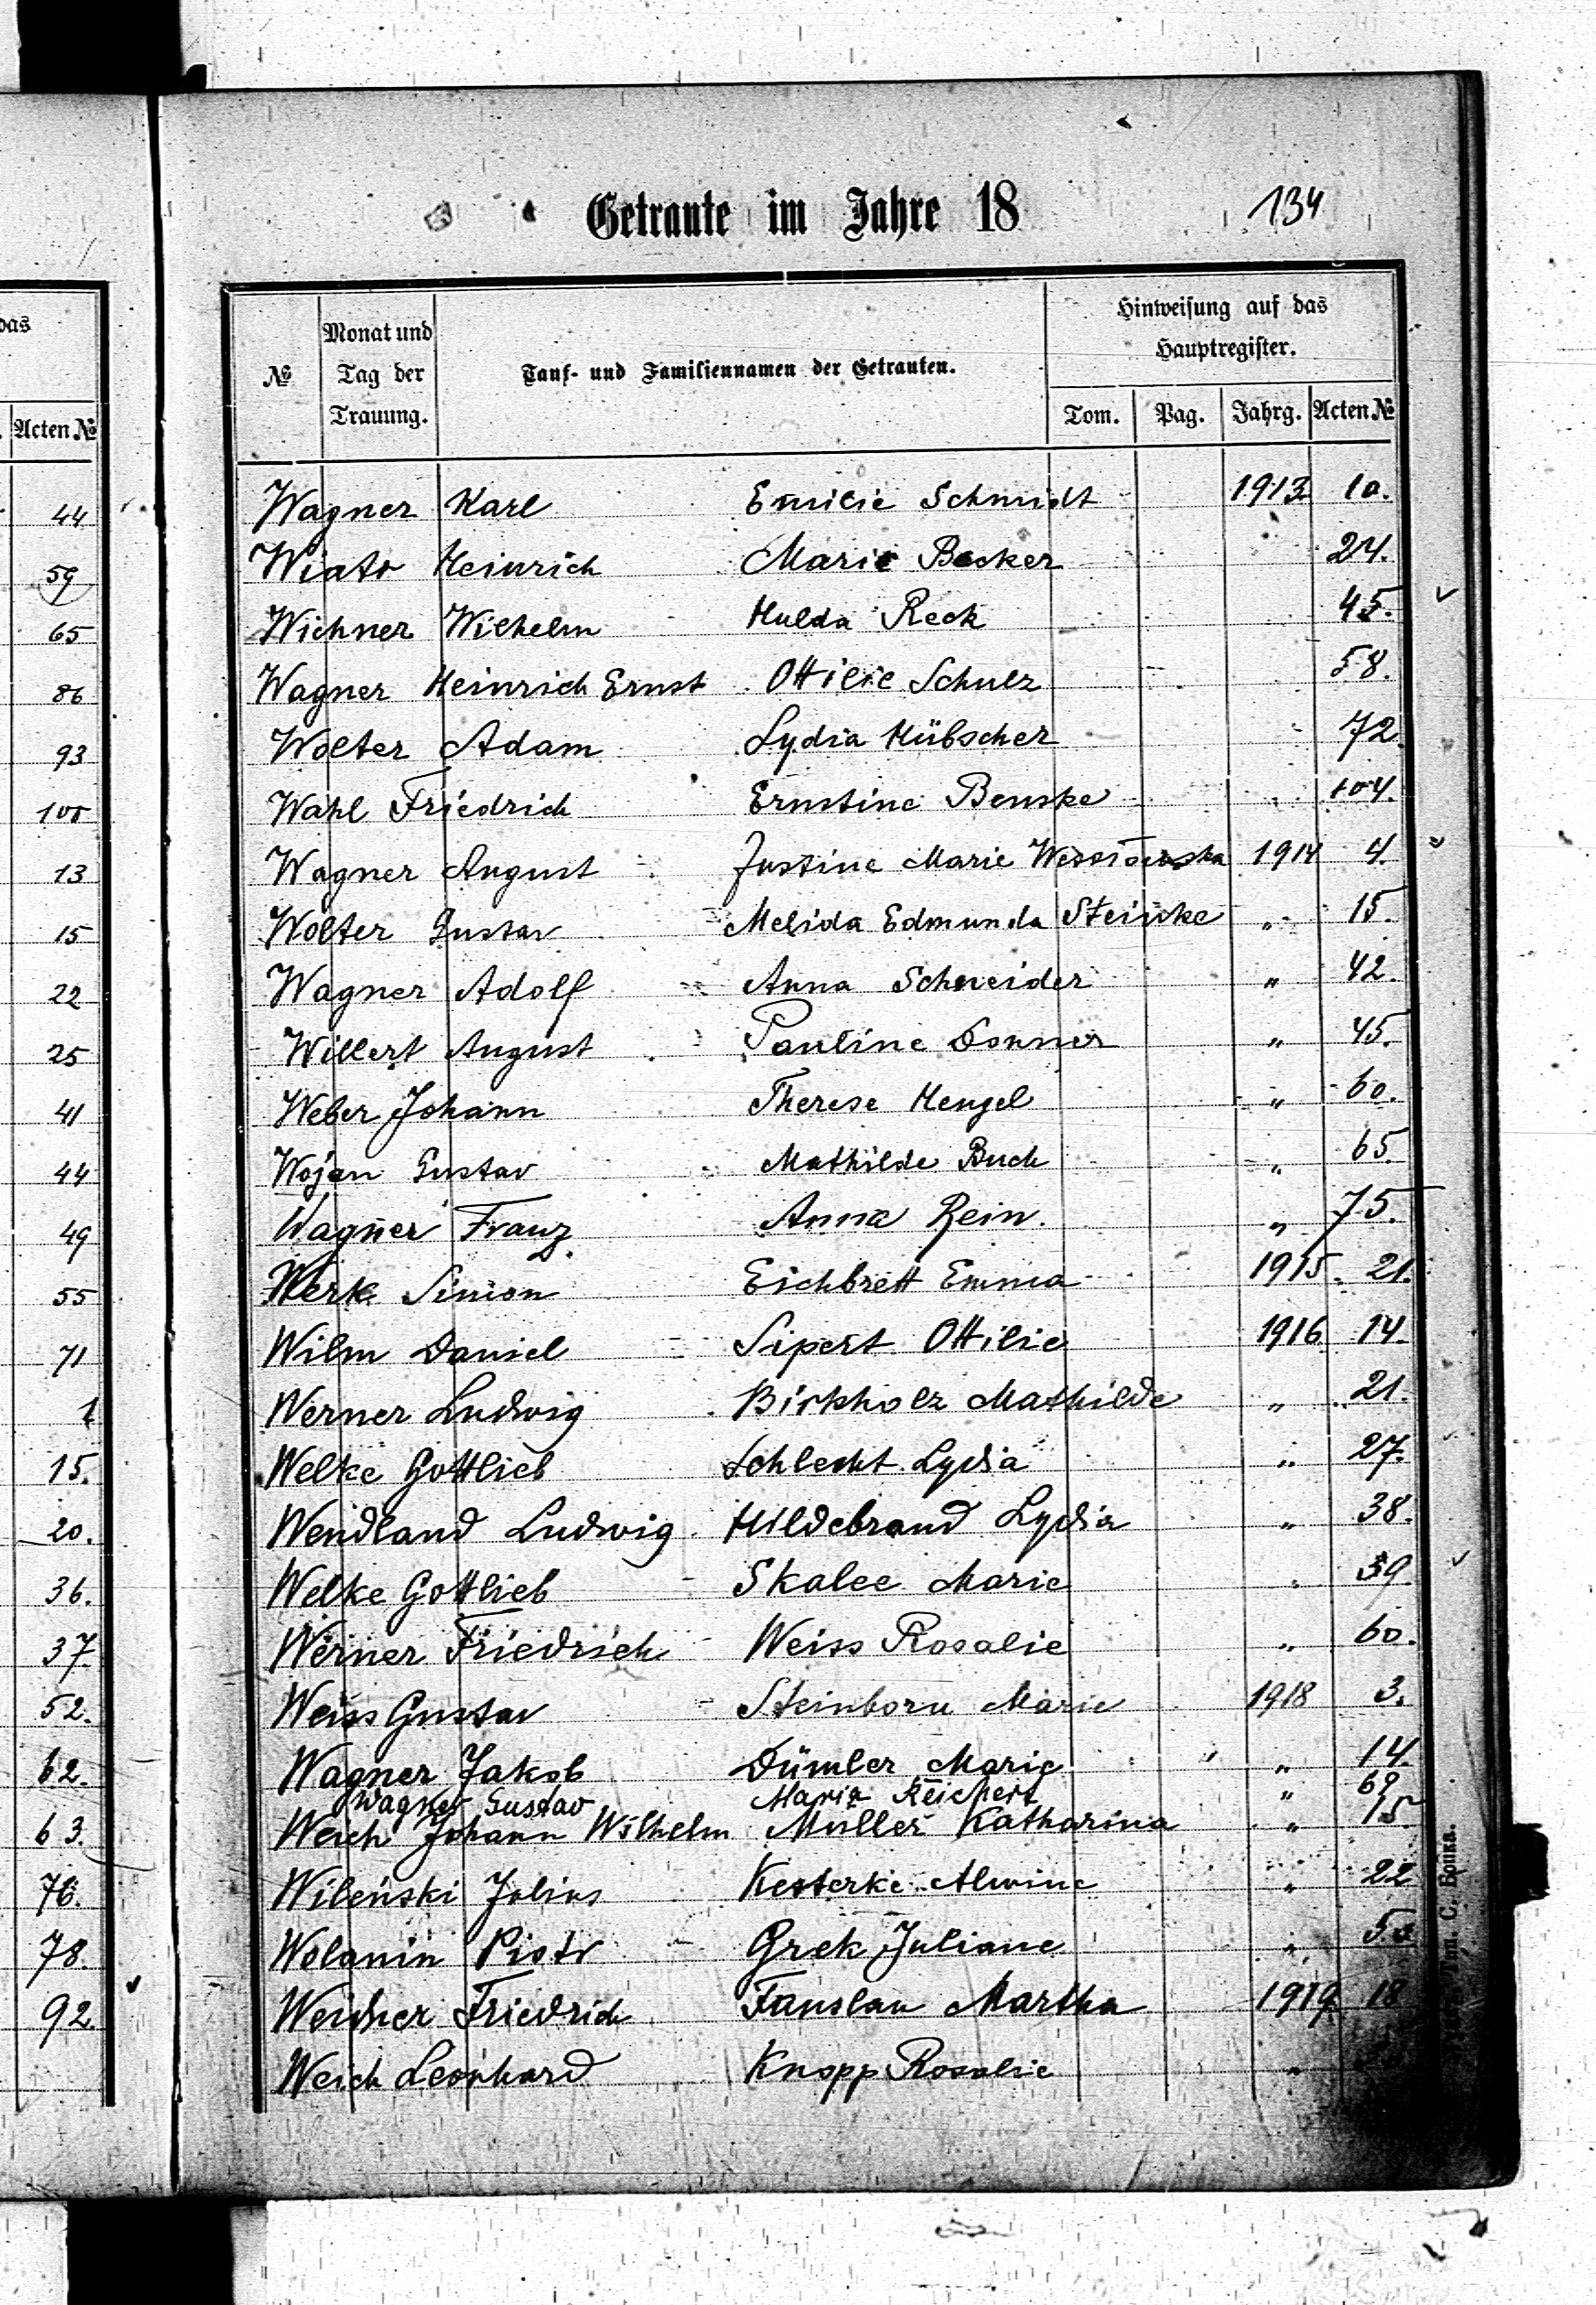 Getraute im Jahre 18
134
das
Acten №
№
Monat und
Tag der
Trauung.
Tauf- und Familiennamen der Getrauten.
Hinweisung auf das
Hauptregister.
Tom. Pag. Jahrg. Acten №
44
59
65
86
93
100
13
15
22
25
41
44
49
55
71
1
15.
20.
36.
37.
52.
62.
63.
76.
78.
92.
Wagner Karl Emilie Schmidt 1913 10.
Wiatr Heinrich Marie Becker 24.
Wichner Wilhelm Hulda Reck 45.
Wagner Heinrich Ernst Ottilie Schulz 58.
Wolter Adam Lydia Hübscher 72.
Wahl Friedrich Ernstine Benske 104.
Wagner August Justine Marie 1914 4.
Wolter Gustav Melida Edmunda Steinke " 15.
Wagner Adolf Anna Schneider " 42.
Willert August Pauline Donner " 45.
Weber Johann Therese Hengel " 60.
Wojan Gustav Mathilde Buch " 65.
Wagner Franz Anna Rein. " 75.
Werk Simon Eichbrett Emma 1915. 21.
Wilm Daniel Sipert Ottilie 1916 14.
Werner Ludwig Birkholz Mathilde " 21.
Welke Gottlieb Schlecht Lydia " 27.
Wendland Ludwig Hildebrand Lydia " 38.
Welke Gottlieb Skalee Marie " 39.
Werner Friedrich Weiss Rosalie " 60.
Weiss Gustav Steinborn Marie 1918 3.
Wagner Jakob Dümler Marie " 14.
Wagner Gustav Maria Reichert " 69
Weich Johann Wilhelm Müller Katharina " 15
Wilenski Julius Kesterke Alwine " 22
Wolanin Piotr Grek Juliane " 50
Weicher Friedrich Fanslau Martha 1919. 18
Weich Leonhard Knopp Rosalie "